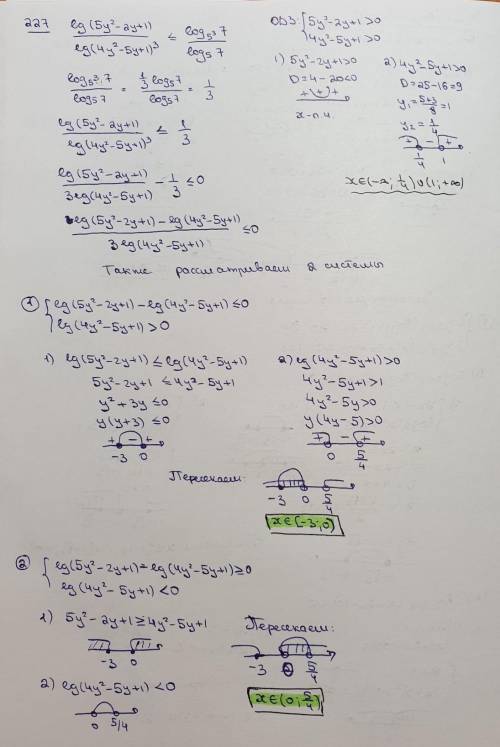 227 lg(5y²-2y+1) / lg(4y²-5y+1)³ ≤ log₅³7 / log₅7
ОДЗ: { 5y²-2y+1>0
4y²-5y+1>0
log₅³7 / log₅7 = ⅓log₅7 / log₅7 = 1/3
1) 5y²-2y+1>0
D=4-20<0
+ + +
x-п.ч.
2) 4y²-5y+1>0
D=25-16=9
y₁=(5+3)/8=1
y₂=1/4
+ - +
1/4 1
x∈(-∞; 1/4)∪(1;+∞)
lg(5y²-2y+1) / lg(4y²-5y+1)³ ≤ 1/3
lg(5y²-2y+1) / 3lg(4y²-5y+1) - 1/3 ≤0
lg(5y²-2y+1)-lg(4y²-5y+1) / 3lg(4y²-5y+1) ≤0
Также рассматриваем 2 системы
① { lg(5y²-2y+1)-lg(4y²-5y+1)≤0
lg(4y²-5y+1)>0
1) lg(5y²-2y+1)≤lg(4y²-5y+1)
5y²-2y+1 ≤4y²-5y+1
y²+3y≤0
y(y+3)≤0
+ - +
-3 0
2) lg(4y²-5y+1)>0
4y²-5y+1>1
4y²-5y>0
y(4y-5)>0
+ - +
0 5/4
Пересекаем:
-3 0 5/4
x∈[-3;0)
② { lg(5y²-2y+1)-lg(4y²-5y+1)≥0
lg(4y²-5y+1)<0
1) 5y²-2y+1≥4y²-5y+1
-3 0
2) lg(4y²-5y+1)<0
0 5/4
Пересекаем:
-3 0 5/4
x∈(0; 5/4)